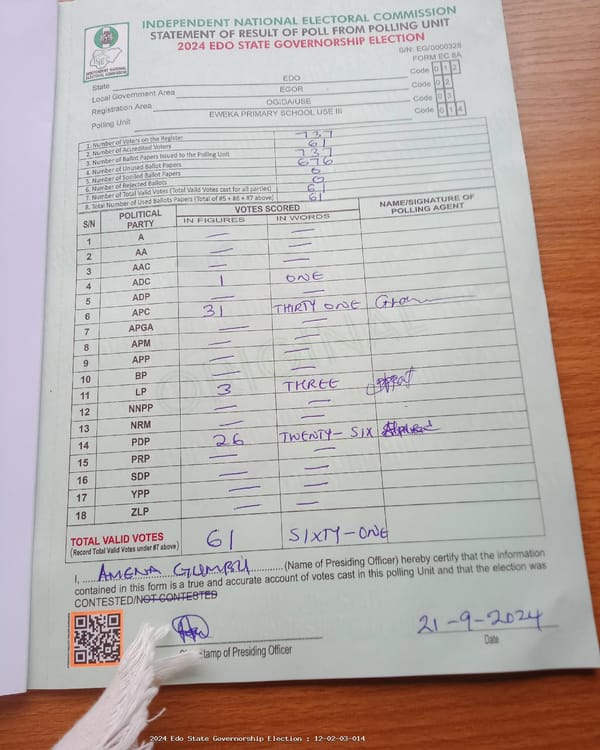 INDEPENDENT NATIONAL ELECTORAL COMMISSION
STATEMENT OF RESULT OF POLL FROM POLLING UNIT
2024 EDO STATE GOVERNORSHIP ELECTION
INEC
INDEPENDENT NATIONAL ELECTORAL COMMISSION
S/N: EG/0000328
FORM EC 8A
State EDO Code 0 1 2
Local Government Area EGOR Code 0 2
Registration Area OGIDA/USE Code 0 3
Polling Unit EWEKA PRIMARY SCHOOL USE III Code 0 1 4
1. Number of Voters on the Register 737
2. Number of Accredited Voters 61
3. Number of Ballot Papers Issued to the Polling Unit 737
4. Number of Unused Ballot Papers 676
5. Number of Spoiled Ballot Papers 0
6. Number of Rejected Ballots 0
7. Number of Total Valid Votes (Total Valid Votes cast for all parties) 61
8. Total Number of Used Ballots Papers (Total of #5 + #6 + #7 above) 61
S/N POLITICAL PARTY VOTES SCORED NAME/SIGNATURE OF POLLING AGENT
IN FIGURES IN WORDS
1 A — —
2 AA — —
3 AAC — —
4 ADC 1 ONE
5 ADP — —
6 APC 31 THIRTY ONE
7 APGA — —
8 APM — —
9 APP — —
10 BP — —
11 LP 3 THREE
12 NNPP — —
13 NRM — —
14 PDP 26 TWENTY-SIX
15 PRP — —
16 SDP — —
17 YPP — —
18 ZLP — —
TOTAL VALID VOTES 61 SIXTY-ONE
(Record Total Valid Votes under #7 above)
I, AMENA GUMBU (Name of Presiding Officer) hereby certify that the information
contained in this form is a true and accurate account of votes cast in this polling Unit and that the election was
CONTESTED/NOT CONTESTED
21-9-2024
Stamp of Presiding Officer Date
ORIGINAL
2024 Edo State Governorship Election : 12-02-03-014